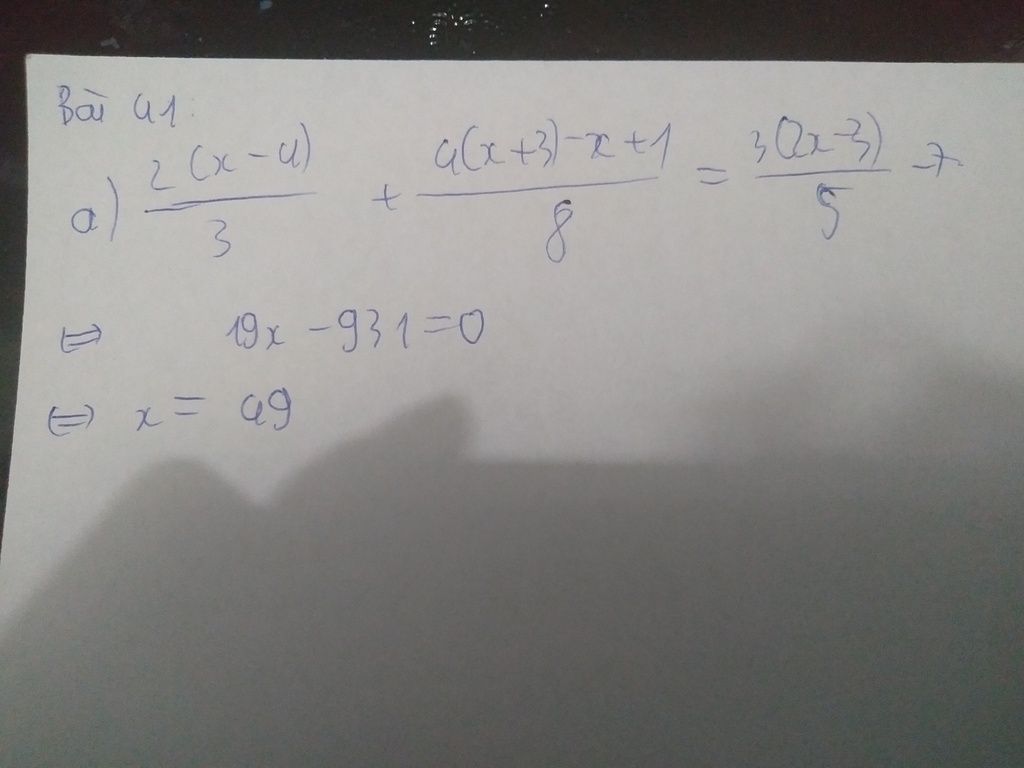 Bài 41:
a) \frac{2(x-4)}{3} + \frac{4(x+3)-x+1}{8} = \frac{3(2x-3)}{5} - 7
⇔ 19x - 931 = 0
⇔ x = 49